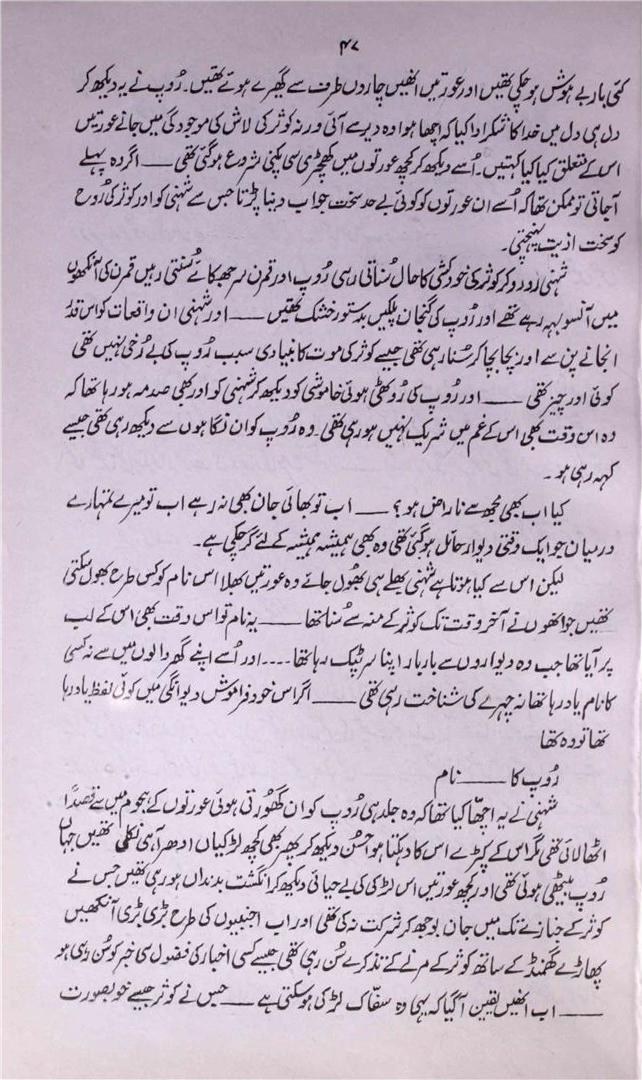 ۴۷
کئی بار بے ہوش ہو چکی تھیں اور عورتیں انھیں چاروں طرف سے گھیرے ہوئے تھیں۔ رُوپ نے یہ دیکھ کر
دل ہی دل میں خدا کا شکر ادا کیا کہ اچھا ہوا وہ دیر سے آئی ورنہ کوثر کی لاش کی موجودگی میں جانے عورتیں
اس کے متعلق کیا کیا کہتیں۔ اُسے دیکھ کر کچھ عورتوں میں کھچڑی سی پکنی شروع ہو گئی تھی —— اگر وہ پہلے
آجاتی تو ممکن تھا کہ اُسے ان عورتوں کو کوئی بے حد سخت جواب دینا پڑتا جس سے شہنی کو اور کوثر کی رُوح
کو سخت اذیت پہنچتی۔
شہنی رو رو کر کوثر کی خودکشی کا حال سُناتی رہی رُوپ اور قمرن سر جھکائے سُنتی رہیں قمرن کی آنکھوں
میں آنسو بہہ رہے تھے اور رُوپ کی گنجان پلکیں بدستور خشک تھیں —— اور شہنی ان واقعات کو اس قدر
انجانے پن سے اور بچا بچا کر سنا رہی تھی جیسے کوثر کی موت کا بنیادی سبب رُوپ کی بے رُخی نہیں تھی
کوئی اور چیز تھی —— اور رُوپ کی رُوٹھی ہوئی خاموشی کو دیکھ کر شہنی کو اور بھی صدمہ ہو رہا تھا کہ
وہ اس وقت بھی اس کے غم میں شریک نہیں ہو رہی تھی۔ وہ رُوپ کو ان نگاہوں سے دیکھ رہی تھی جیسے
کہہ رہی ہو۔
کیا اب بھی مجھ سے ناراض ہو؟ —— اب تو بھائی جان بھی نہ رہے اب تو میرے تمہارے
درمیان جو ایک وقتی دیوار حائل ہو گئی تھی وہ بھی ہمیشہ ہمیشہ کے لئے گر چکی ہے۔
لیکن اس سے کیا ہوتا ہے شہنی بھلے ہی بھُول جائے وہ عورتیں بھلا اس نام کو کس طرح بھول سکتی
تھیں جو انھوں نے آخر وقت تک کوثر کے منہ سے سُنا تھا —— یہ نام تو اس وقت بھی اس کے لب
پر آیا تھا جب وہ دیواروں سے بار بار اپنا سر ٹپک رہا تھا .... اور اُسے اپنے گھر والوں میں سے نہ کسی
کا نام یاد رہا تھا نہ چہرے کی شناخت رہی تھی —— اگر اس خود فراموش دیوانگی میں کوئی لفظ یاد رہا
تھا تو وہ تھا
رُوپ کا —— نام
شہنی نے یہ اچھا کیا تھا کہ وہ جلد ہی رُوپ کو ان گھُورتی ہوئی عورتوں کے ہجوم میں سے قصداً
اٹھا لائی تھی مگر اس کے کپڑے اس کا دہکتا ہوا حسن دیکھ کر پھر بھی کچھ لڑکیاں ادھر آہی نکلی تھیں جہاں
رُوپ بیٹھی ہوئی تھی اور کچھ عورتیں اس لڑکی کی بے حیائی دیکھ کر انگشت بدنداں ہو رہی تھیں جس نے
کوثر کے جنازے تک میں جان بوجھ کر شرکت نہ کی تھی اور اب اجنبیوں کی طرح بڑی بڑی آنکھیں
پھاڑے گھمنڈ کے ساتھ کوثر کے مرنے کے تذکرے سُن رہی تھی جیسے کسی اخبار کی فضول سی خبر کو سُن رہی ہو
—— اب انھیں یقین آگیا کہ یہی وہ سفّاک لڑکی ہو سکتی ہے —— جس نے کوثر جیسے خوبصورت